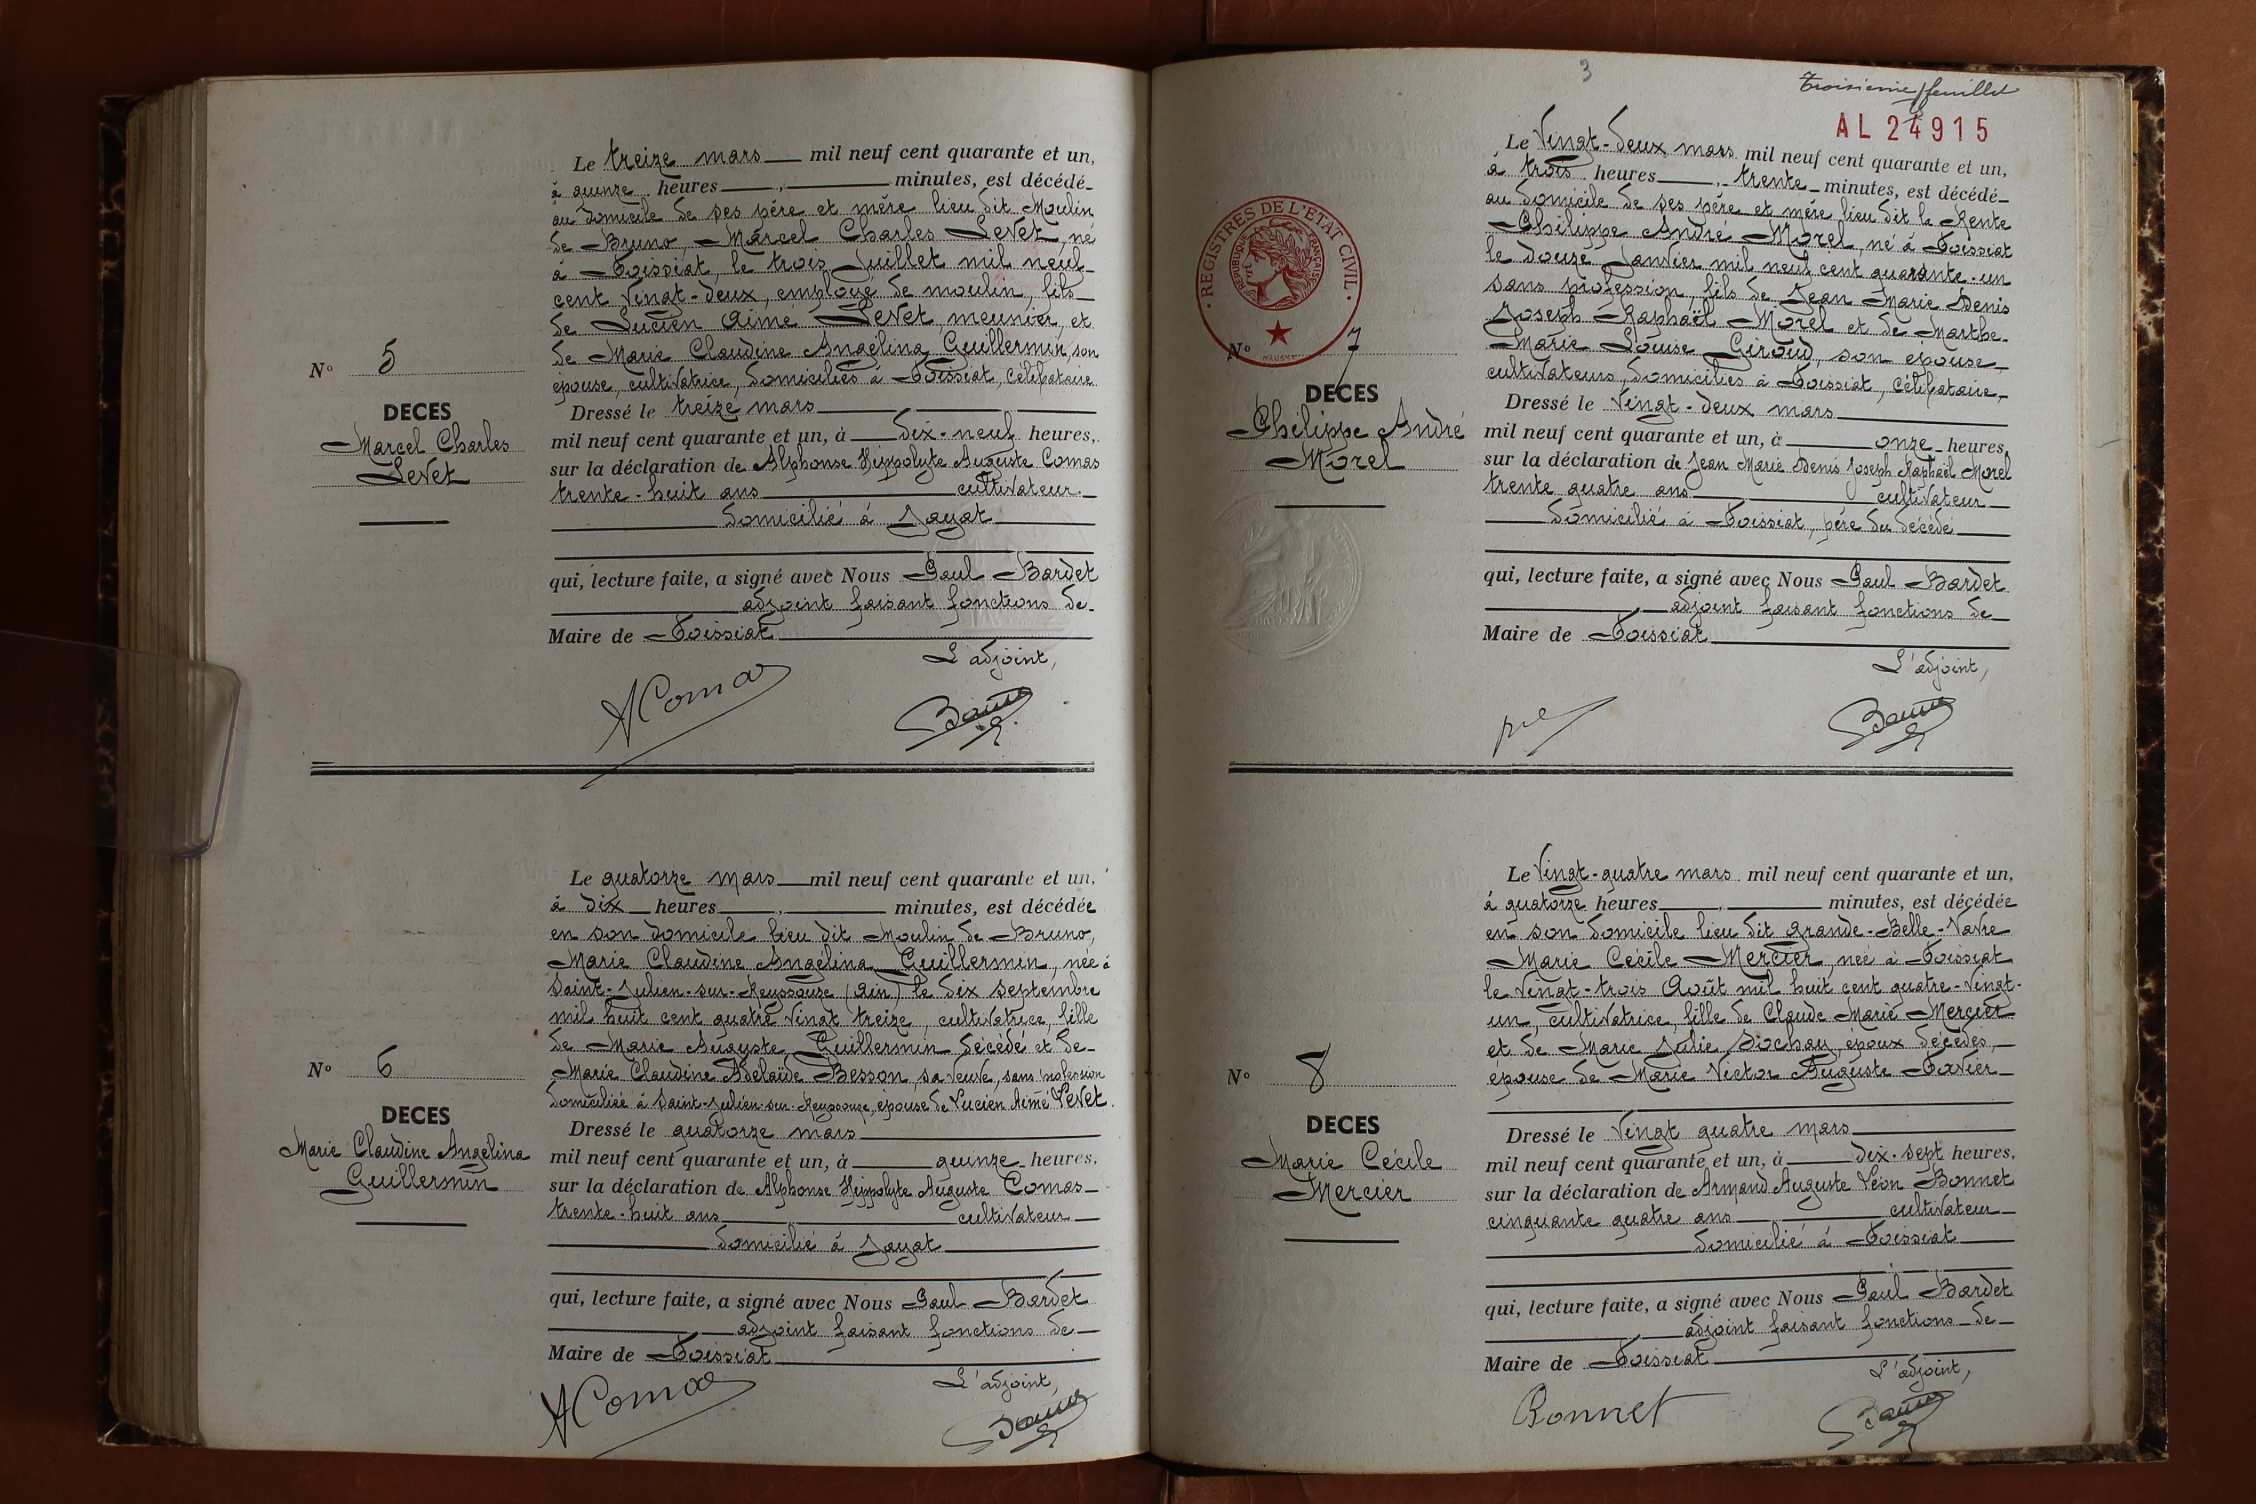 Le treize mars mil neuf cent quarante et un,
à quinze heures , minutes, est décédé
au domicile de ses père et mère lieu dit Moulin
de Bruno, Marcel Charles Levet, né
à Foissiat, le trois Juillet mil neuf
cent vingt-deux, employé de moulin, fils
de Lucien Aimé Levet, meunier, et
de Marie Claudine Angélina Guillermin, son
épouse, cultivatrice, domiciliés à Foissiat, célibataire
Nº 5
DECES
Marcel Charles
Levet
Dressé le treize mars
mil neuf cent quarante et un, à dix-neuf heures,
sur la déclaration de Alphonse Hippolyte Auguste Comas
trente-huit ans cultivateur
domicilié à Jayat
qui, lecture faite, a signé avec Nous Paul Bardet
adjoint faisant fonctions de
Maire de Foissiat
L'adjoint,
AComas
Le quatorze mars mil neuf cent quarante et un,
à dix heures , minutes, est décédée
en son domicile lieu dit Moulin de Bruno,
Marie Claudine Angélina Guillermin, née à
Saint-Julien-sur-Reyssouze (Ain) le dix septembre
mil huit cent quatre vingt treize, cultivatrice, fille
de Marie Auguste Guillermin décédé et de
Marie Claudine Adelaïde Besson sa veuve, sans profession
domiciliée à Saint-Julien-sur-Reyssouze, épouse de Lucien Aimé Levet
Nº 6
DECES
Marie Claudine Angélina
Guillermin
Dressé le quatorze mars
mil neuf cent quarante et un, à quinze heures,
sur la déclaration de Alphonse Hippolyte Auguste Comas
trente-huit ans cultivateur
domicilié à Jayat
qui, lecture faite, a signé avec Nous Paul Bardet
adjoint faisant fonctions de
Maire de Foissiat
L'adjoint,
AComas
3
Troisième feuillet
AL 24915
Le vingt-deux mars mil neuf cent quarante et un,
à trois heures , trente minutes, est décédé
au domicile de ses père et mère lieu dit le Rente
Philippe André Morel, né à Foissiat
le douze Janvier mil neuf cent quarante-un
sans profession, fils de Jean Marie Denis
Joseph Raphaël Morel et de Marthe
Marie Louise Giroud, son épouse
cultivateurs, domiciliés à Foissiat, célibataire
REGISTRES DE L'ETAT CIVIL
REPUBLIQUE FRANÇAISE
Nº 7
DECES
Philippe André
Morel
Dressé le vingt-deux mars
mil neuf cent quarante et un, à onze heures,
sur la déclaration de Jean Marie Denis Joseph Raphaël Morel
trente quatre ans cultivateur
domicilié à Foissiat, père du décédé
qui, lecture faite, a signé avec Nous Paul Bardet
adjoint faisant fonctions de
Maire de Foissiat
L'adjoint,
Le vingt-quatre mars mil neuf cent quarante et un,
à quatorze heures , minutes, est décédée
en son domicile lieu dit Grande-Belle-Vavre
Marie Cécile Mercier, née à Foissiat
le vingt-trois Août mil huit cent quatre-vingt-
un, cultivatrice, fille de Claude Marie Mercier
et de Marie Julie Sochay, époux décédés,
épouse de Marie Victor Auguste Favier
Nº 8
DECES
Marie Cécile
Mercier
Dressé le vingt quatre mars
mil neuf cent quarante et un, à dix-sept heures,
sur la déclaration de Armand Auguste Léon Bonnet
cinquante quatre ans cultivateur
domicilié à Foissiat
qui, lecture faite, a signé avec Nous Paul Bardet
adjoint faisant fonctions de
Maire de Foissiat
L'adjoint,
Bonnet